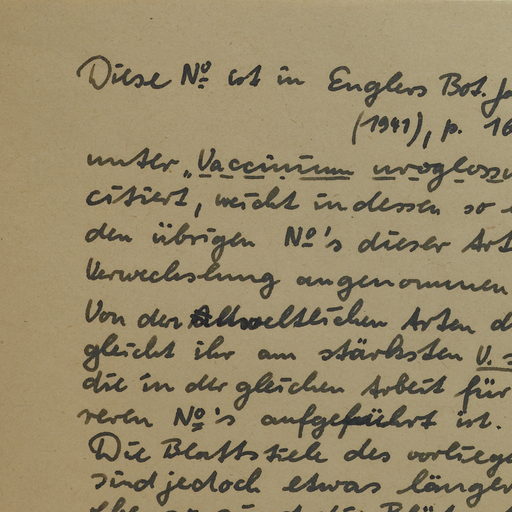 Diese No ist in Englers Bot.
(1941), p. 16
unter „Vaccinium uroglossu
citiert, weicht indessen so
den übrigen No's dieser Art
Verwechslung angenommen
Von den altweltlichen Arten d
gleicht ihr am stärksten V. s
die in der gleichen Arbeit für
reren No's aufgeführt ist.
Die Blattstiele des vorlieg
sind jedoch etwas länger